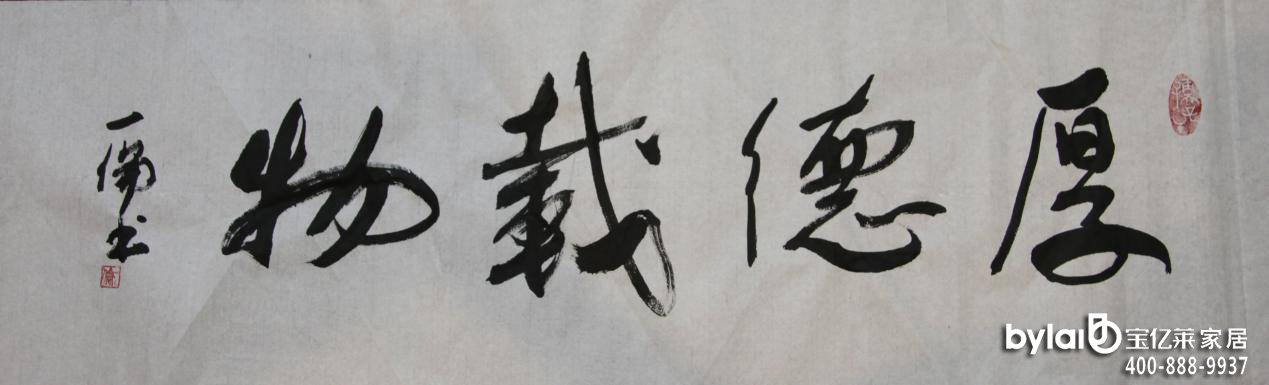 厚德载物
一儒书
bylai 宝亿莱家居
400-888-9937